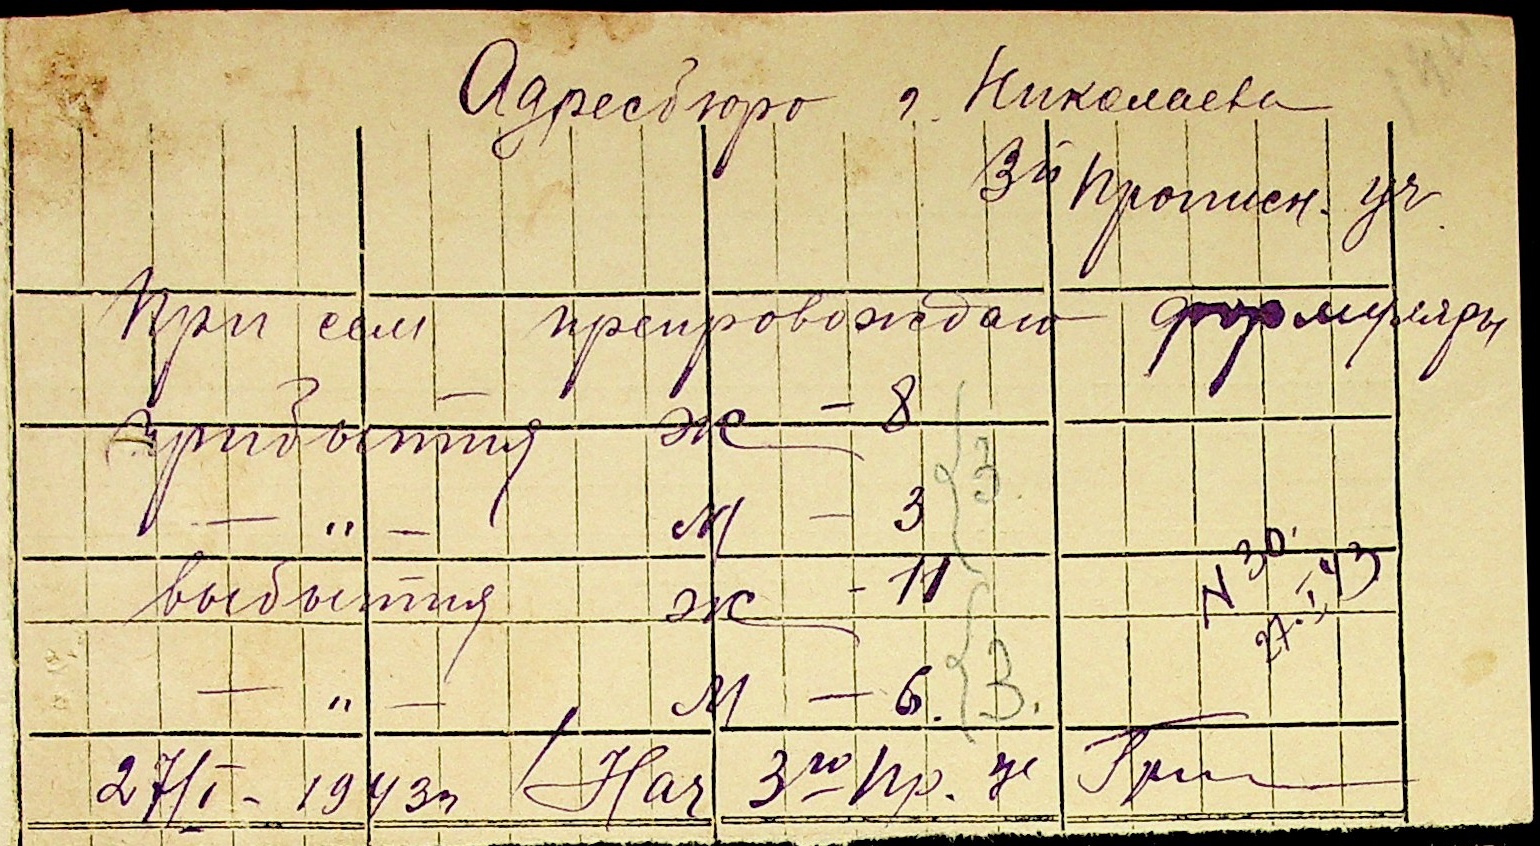 Адресбюро г. Николаева
3й Прописн. уч.
При сем препровождаю формуляры
прибытия Ж - 8
- " - М - 3
3.
выбытия Ж - 11
- " - М - 6.
3.
N 30.
27.I.43
27/I - 1943г Нач 3го Пр. уч